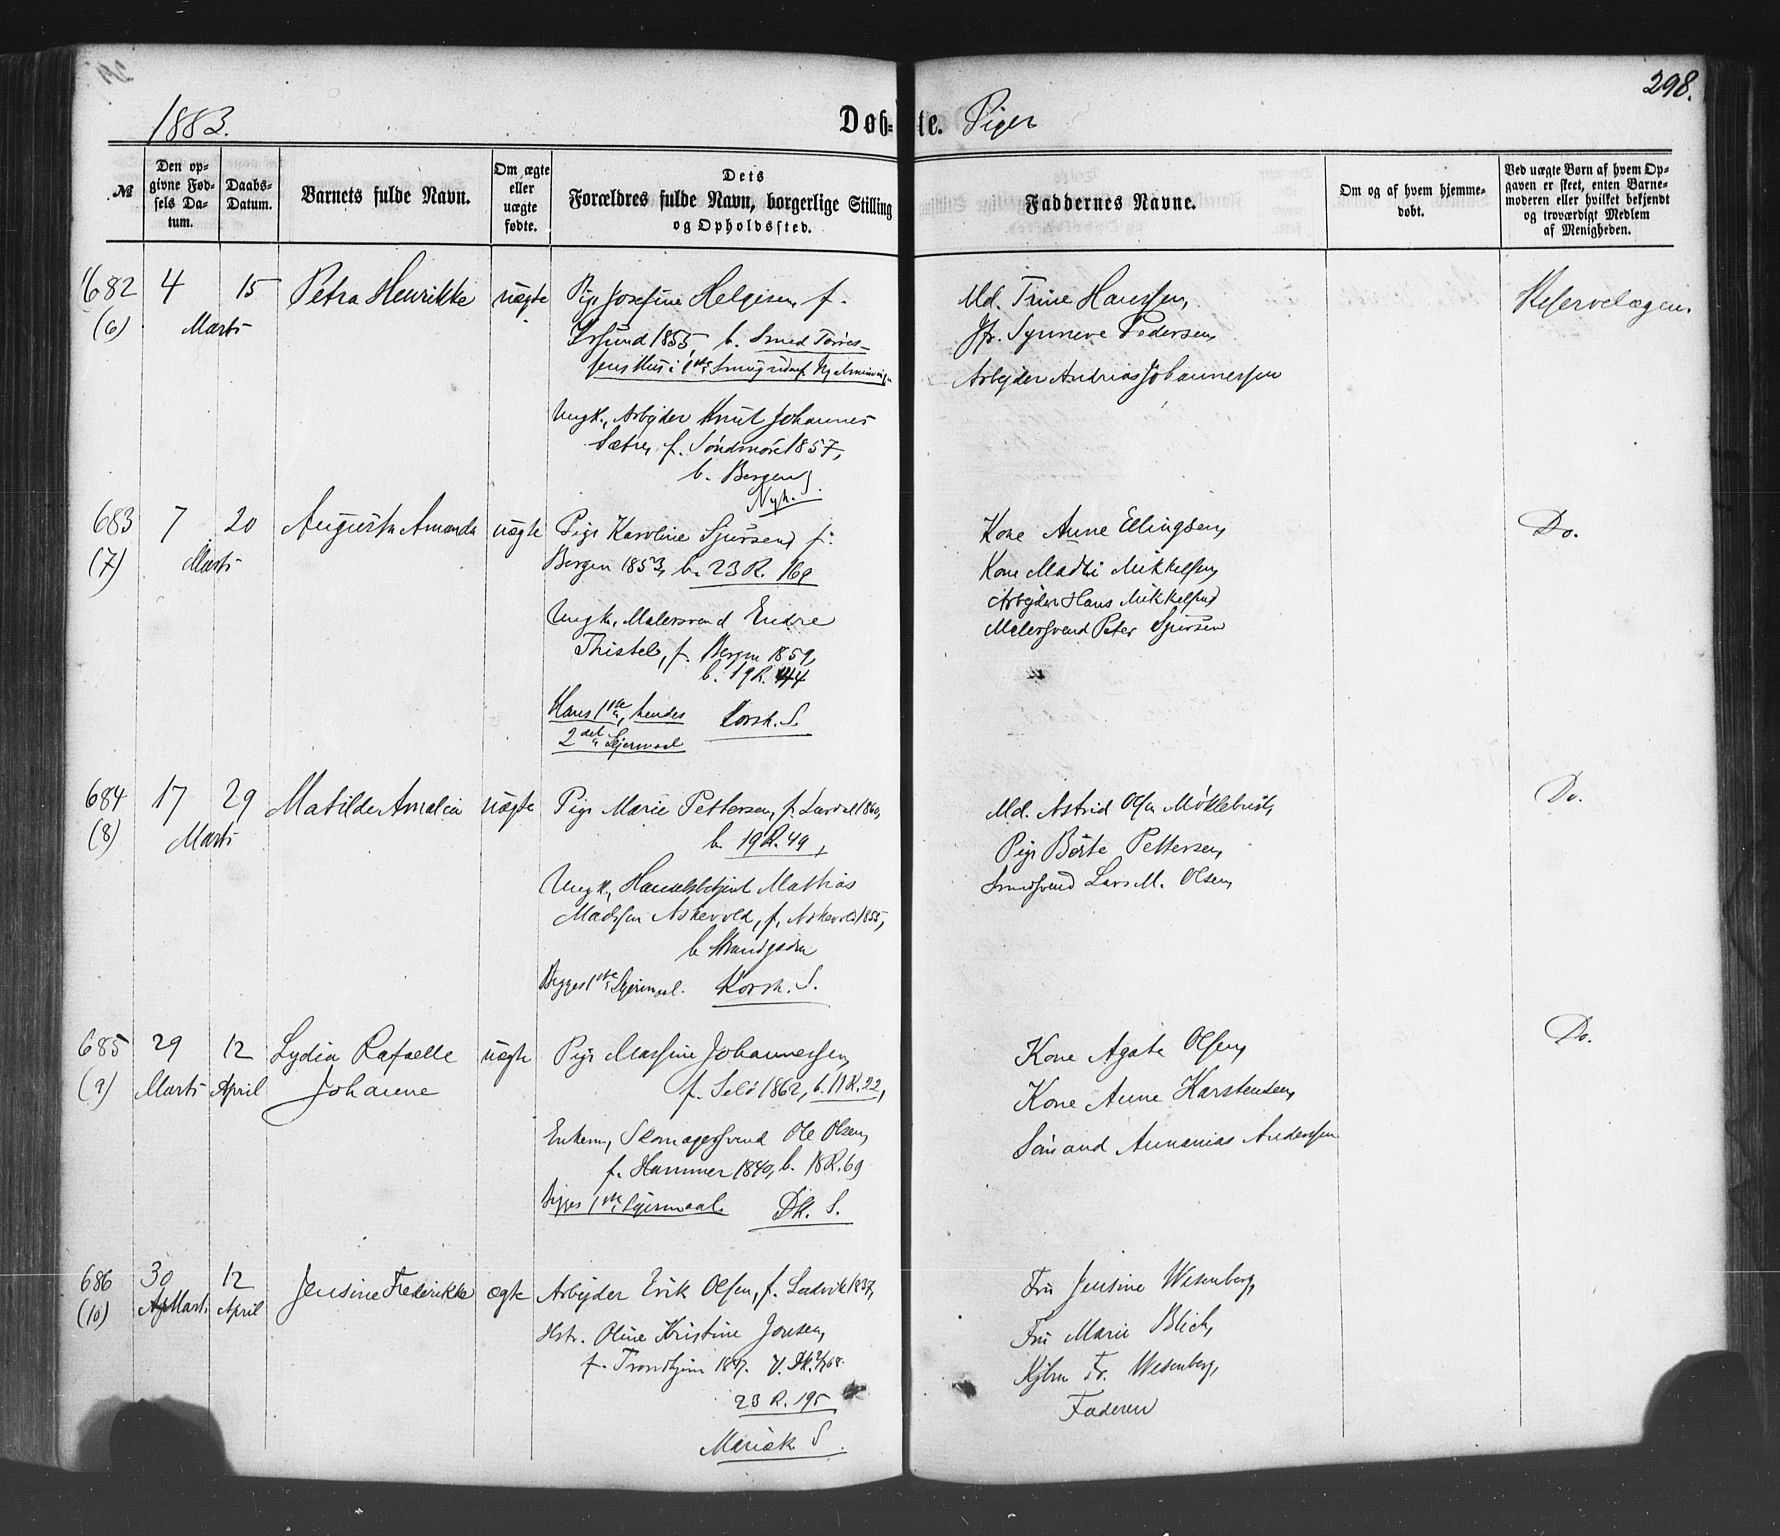 298.
1883.
Døb-te. Piger
№
Den opgivne Fødsels Datum.
Daabs-Datum.
Barnets fulde Navn.
Om ægte eller uægte fødte.
Dets Forældres fulde Navn, borgerlige Stilling og Opholdssted.
Faddernes Navne.
Om og af hvem hjemmedøbt.
Ved uægte Børn af hvem Opgaven er skeet, enten Barnemoderen eller hvilket bekjendt og troværdigt Medlem af Menigheden.
682 4 15 Petra Henrikke uægte Pige Josefine Helgesen, f.
(6) Marts
1855, b. Smed Tørres-
Ungk., Arbejder Knut Johannes
Sætre, f. Søndmøre 1857,
b. Bergen
Nyk.
Md. Trine Hanssen,
Jfr. Synneve Pedersen,
Arbejder Andreas Johannessen
683 7 20 Augusta Amanda uægte Pige Karoline Sjursen f.
(7) Marts
Bergen 1853, b. 23 R. 169
Ungk., Malersvend Endre
Thistel, f. Bergen 1859,
b. 19 R. 44
Hans 1ste, hendes Korsk. S.
2det Lejermaal
Kone Anne Ellingsen,
Kone Madli Mikkelsen,
Arbejder Hans Mikkelsen
Malersvend Peter Sjursen
Do.
684 17 29 Matilde Amalia uægte Pige Marie Pettersen, f. Lærdal
(8) Marts
b. 19 R. 49,
Ungk., Handelsbetjent Mathias
Madssen Askevold, f. Askevold 1855,
b. Strandgaden
Begges 1ste Lejermaal. Korsk. S.
Md. Astrid Ols. Møklebust,
Pige Berte Pettersen,
Smedsvend Lars M. Olsen,
Do.
685 29 12 Lydia Rafaelle uægte Pige Massine Johannessen,
(9) Marts April Johanne
f. Selø 1862, b. 11 R. 22,
Enkem., Skomagersvend Ole Olsen,
f. Hammer 1840, b. 18 R. 69
Begges 1ste Lejermaal. Dk. S.
Kone Agate Olsen,
Kone Anne Karstensen,
Sømand Annanias Anderssen
Do.
686 30 12 Jensine Frederikke ægte Arbejder Erik Olsen, f. Ledvik 1837,
(10) Marts April
Hstr. Oline Kristine Jonsen,
f. Trondhjem
23 R. 195
Mariæk. S.
Fru Jensine Wesenberg,
Fru Marie Blich,
Kjbm. Fr. Wesenberg,
Faderen